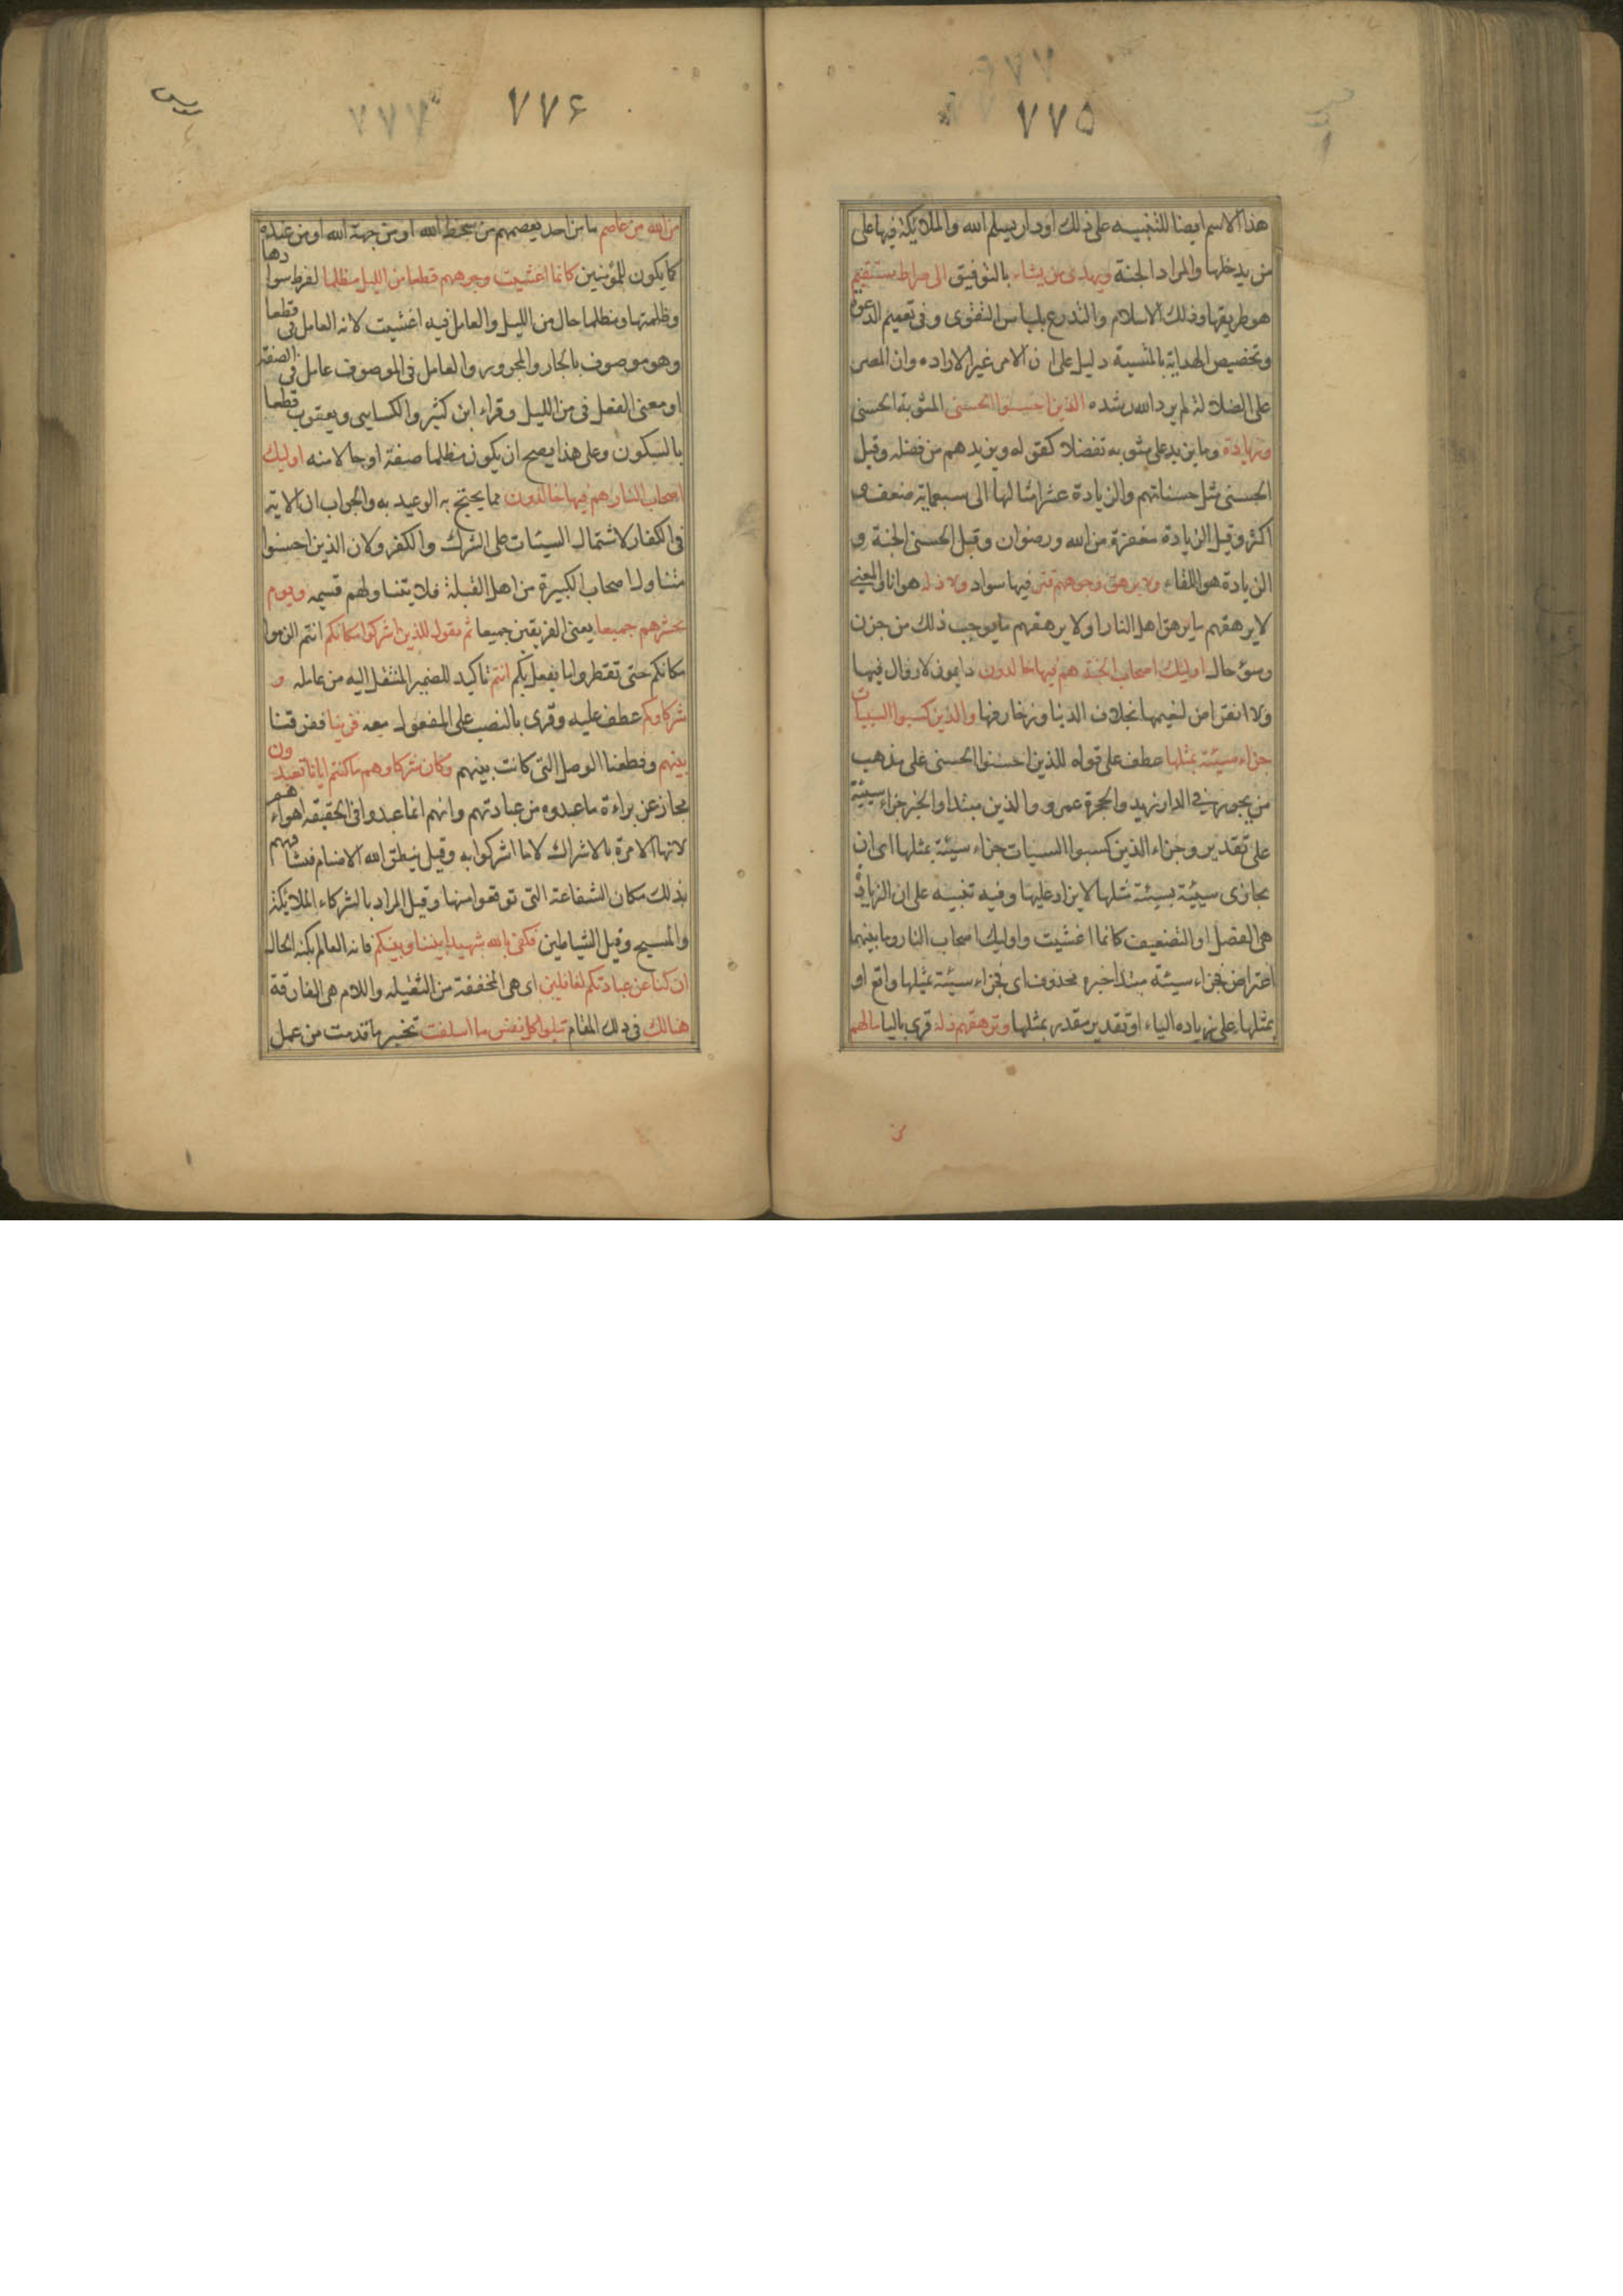 ٧٧٥
هذا الاسم ايضا للتنبيه على ذلك او دار يسلم الله والملائكة فيها على
من يدخلها والمراد الجنة ويهدى من يشاء بالتوفيق الى صراط مستقيم
هو طريقها وذلك الاسلام والتدرع بلباس التقوى وفى تعميم الدعوة
وتخصيص الهداية بالمشية دليل على ان الامر غير الاراده وان المصر
على الضلالة لم يرد الله رشده الذين احسنوا الحسنى المثوبة الحسنى
وزيادة وما يزيد على مثوبه تفضلا كقوله ويزيدهم من فضله وقيل
الحسنى مثل حسناتهم والزيادة عشر امثالها الى سبعماية ضعف و
اكثر وقيل الزيادة مغفرة من الله ورضوان وقيل الحسنى الجنة و
الزيادة هو اللقاء ولا يرهق وجوههم قتر فيها سواد ولا ذلة هوان والمعنى
لا يرهقهم ما يرهق اهل النار او لا يرهقهم ما يوجب ذلك من حزن
وسوء حال اوليك اصحاب الجنة هم فيها خالدون دايمون لا زوال فيها
ولا انقراض لنعيمها بخلاف الدنيا وزخارفها والذين كسبوا السيبات
جزاء سيئة بمثلها عطف على قوله للذين احسنوا الحسنى على مذهب
من يجوز فى الدار زيد والحجرة عمرو والذين مبتدا والخبر جزاء سيئة
على تقدير وجزاء الذين كسبوا السيات جزاء سيئة بمثلها اى ان
يجازى سيئة بسيئة مثلها لا يزاد عليها وفيه تنبيه على ان الزيادة
هى الفضل او التضعيف كانما اغشيت واوليك اصحاب النار وما بينهما
اعتراض فجزاء سيئة مبتدا خبره محذوف اى فجزاء سيئة بمثلها واقع او
بمثلها على زياده الباء او تقدير مقدر بمثلها وترهقهم ذلة قرى باليا ما لهم
٧٧۶
من الله من عاصم ما من احد يعصمهم من سخط الله او من جهة الله او من عنده
كما يكون للمؤمنين كانما اغشيت وجوههم قطعا من الليل مظلما لفرط سوادها
وظلمتها ومظلما حال من الليل والعامل فيه اغشيت لانه العامل فى قطعا
وهو موصوف بالجار والمجرور والعامل فى الموصوف عامل فى الصفة
او معنى الفعل فى من الليل وقراء ابن كثير والكسايى ويعقوب قطعا
بالسكون وعلى هذا يصح ان يكون مظلما صفة او حالا منه اوليك
اصحاب النار هم فيها خالدون مما يحتج به الوعيديه والجواب ان الاية
فى الكفار لاشتمال السيئات على الشرك والكفر ولان الذين احسنوا
متناول اصحاب الكبيرة من اهل القبلة فلا يتناولهم قسيمه ويوم
نحشرهم جميعا يعنى الفريقين جميعا ثم نقول للذين اشركوا مكانكم انتم الزموا
مكانكم حتى تنظروا ما يفعل بكم انتم تاكيد للضمير المنتقل اليه من عامله و
شركاوكم عطف عليه وقرى بالنصب على المفعول معه فزيلنا ففرقنا
بينهم وقطعنا الوصل التى كانت بينهم وكان شركاوهم ما كنتم ايانا تعبدون
مجاز عن براءة ما عبدوه من عبادتهم وانهم انما عبدوا فى الحقيقه اهواءهم
لانها الامرة بالاشراك لا ما اشركوا به وقيل ينطق الله الاصنام فتشافههم
بذلك مكان الشفاعة التى توقعوا منها وقيل المراد بالشركاء الملائكة
والمسيح وقيل الشياطين فكفى بالله شهيدا بيننا وبينكم فانه العالم بكنه الحال
ان كنا عن عبادتكم لغافلين اى هى المخففة من الثقيله واللام هى الفارقة
هنالك فى ذلك المقام تبلوا كل نفس ما اسلفت تختبر ما قدمت من عمل